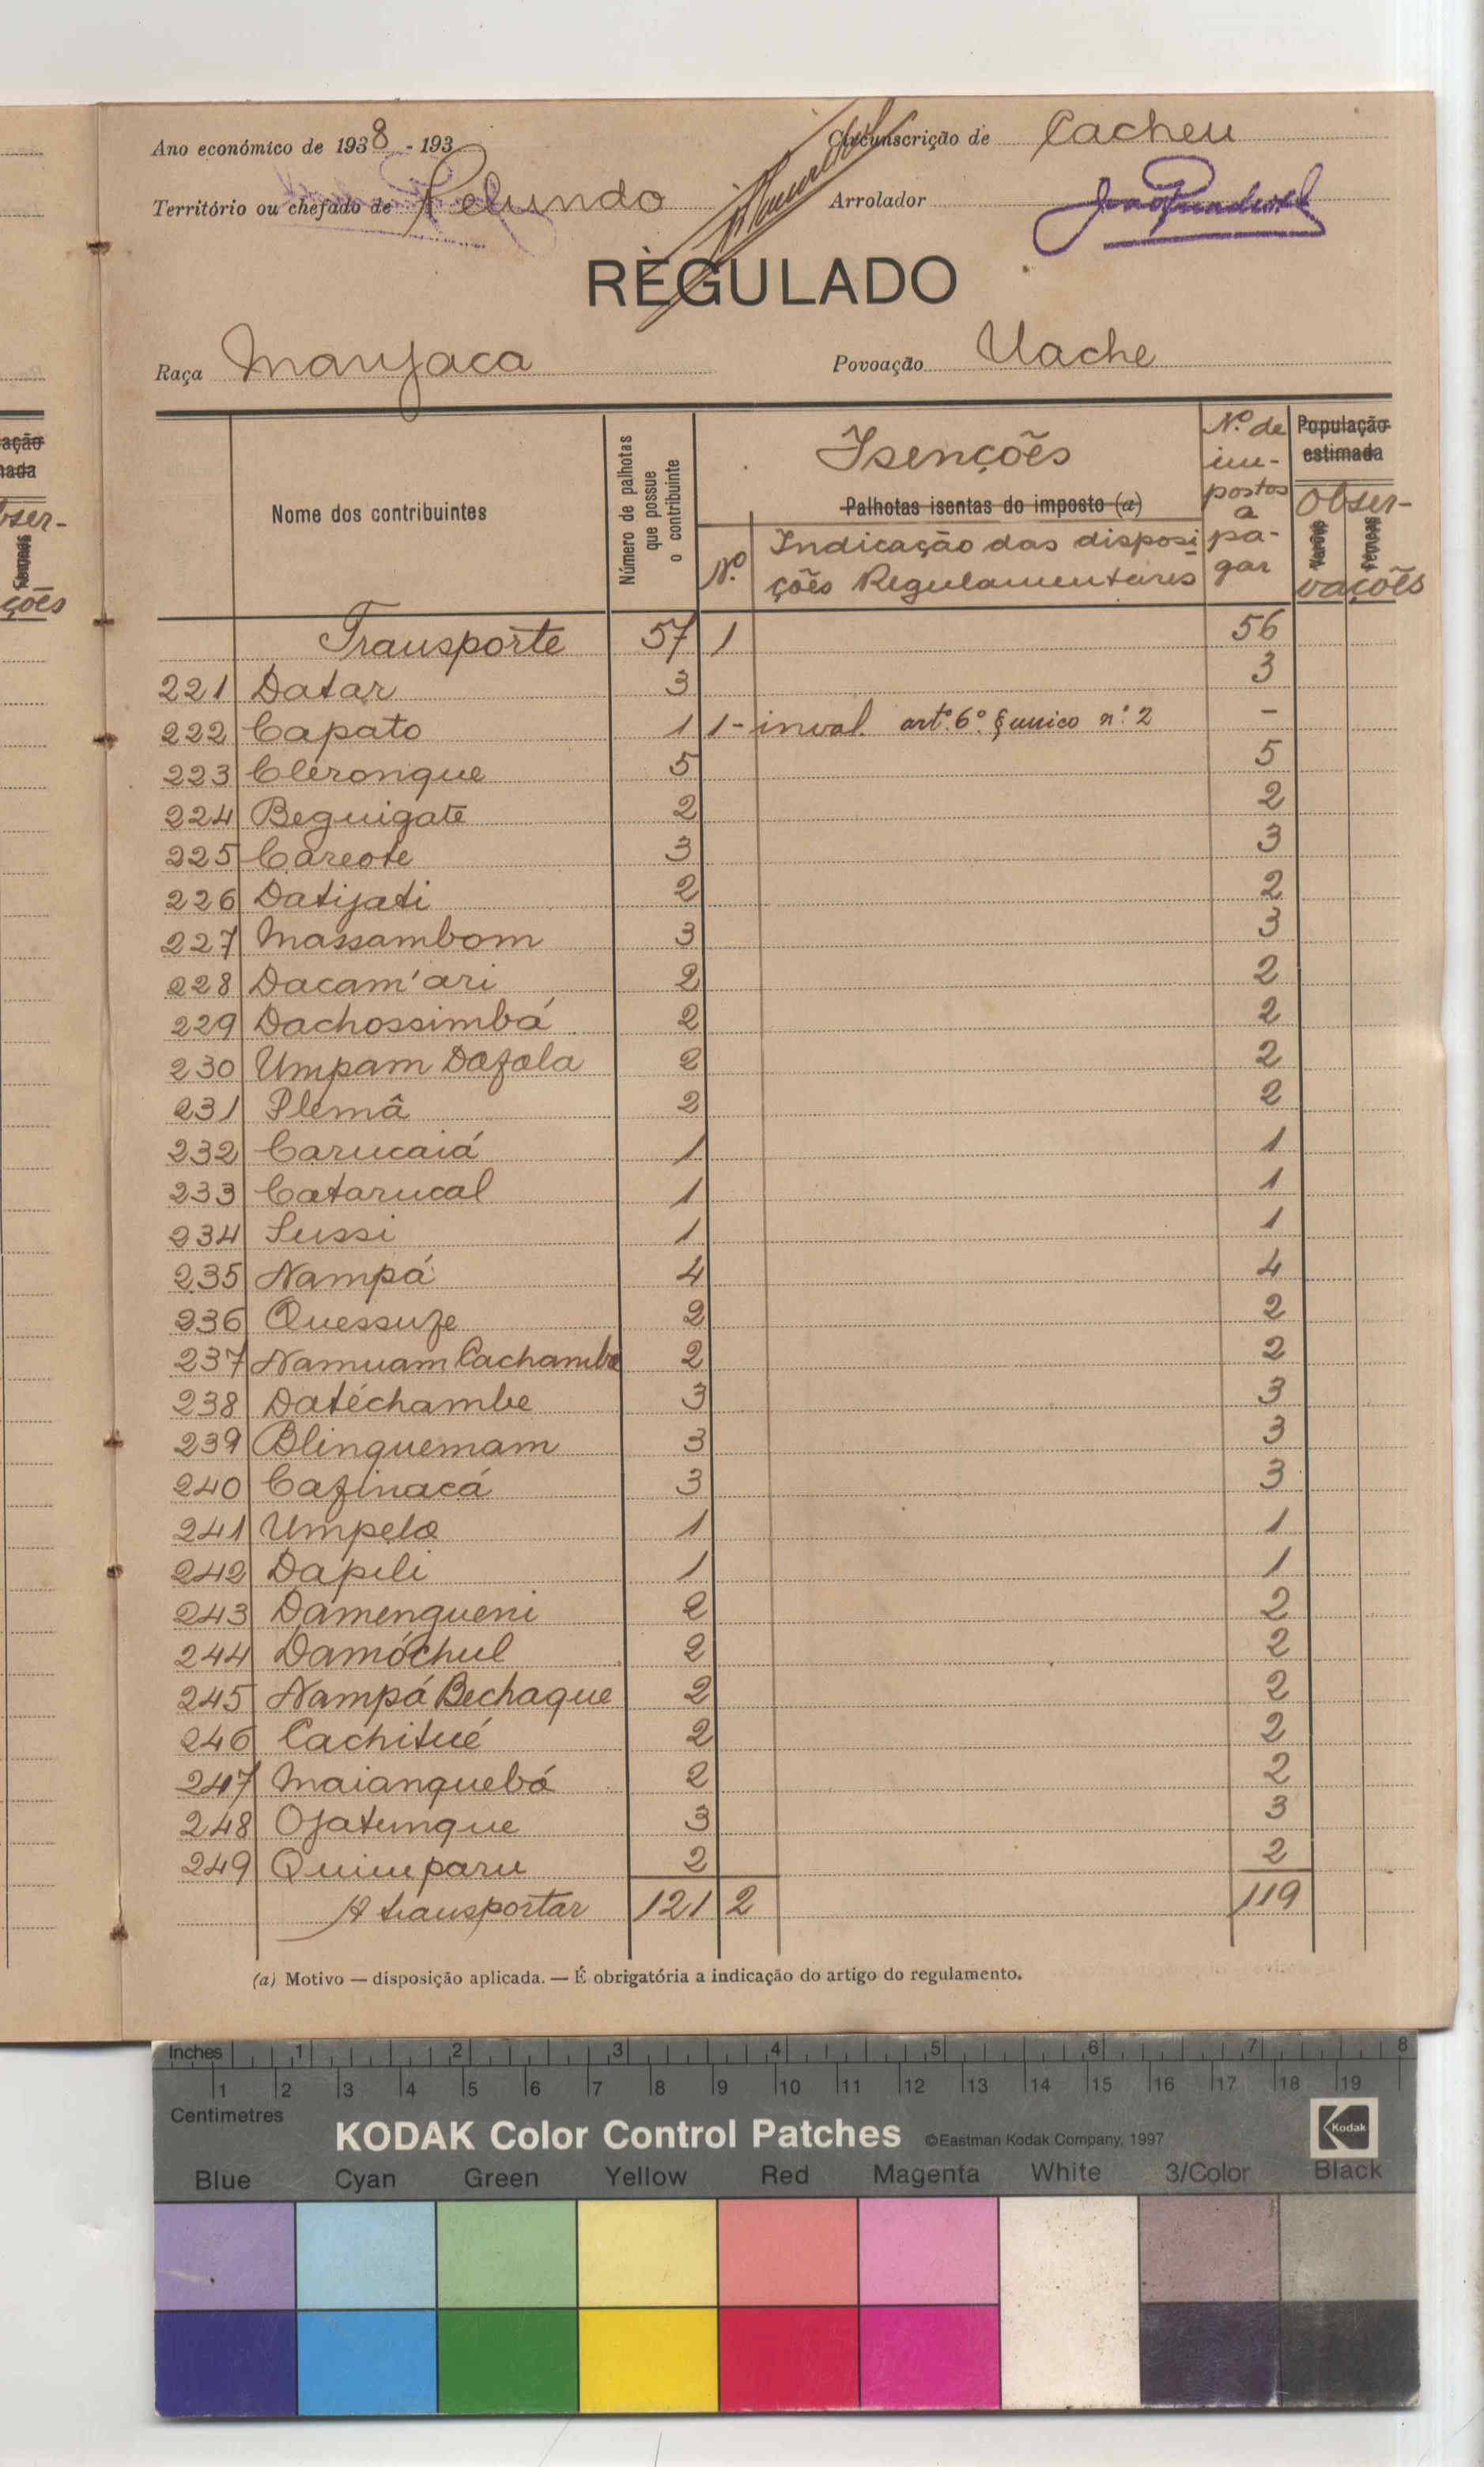 Ano económico de 1938 - 193
Circunscrição de Cacheu
Território ou chefado de Pelundo
Arrolador
REGULADO
Raça Manjaca
Povoação Uache
Nome dos contribuintes
Número de palhotas que possue o contribuinte
Isenções
Palhotas isentas do imposto (a)
N.º
Indicação das disposi
ções Regulamentares
N.º de im-postos a pa-gar
População estimada
Obser-vações
Varões
Fêmeas
Transporte 57 1 56
221 Datar 3 3
222 Capato 1 1 - inval. art.º 6.º § unico n.º 2 -
223 Cléronque 5 5
224 Beguigate 2 2
225 Careote 3 3
226 Datijati 2 2
227 Massambom 3 3
228 Dacam'ari 2 2
229 Dachossimbá 2 2
230 Umpam Dafala 2 2
231 Plemâ 2 2
232 Carucaiá 1 1
233 Catarucal 1 1
234 Sussi 1 1
235 Nampá 4 4
236 Quessuze 2 2
237 Namuam Cachambe 2 2
238 Datéchambe 3 3
239 Blinquemam 3 3
240 Cafinacá 3 3
241 Umpelo 1 1
242 Dapili 1 1
243 Damengueni 2 2
244 Damóchul 2 2
245 Nampá Bechaque 2 2
246 Cachitué 2 2
247 Maianquebá 2 2
248 Ojatunque 3 3
249 Quimparu 2 2
A transportar 121 2 119
(a) Motivo — disposição aplicada. — É obrigatória a indicação do artigo do regulamento.
Inches 1 2 3 4 5 6 7 8
1 2 3 4 5 6 7 8 9 10 11 12 13 14 15 16 17 18 19
Centimetres
KODAK Color Control Patches ©Eastman Kodak Company, 1997 Kodak
Blue Cyan Green Yellow Red Magenta White 3/Color Black